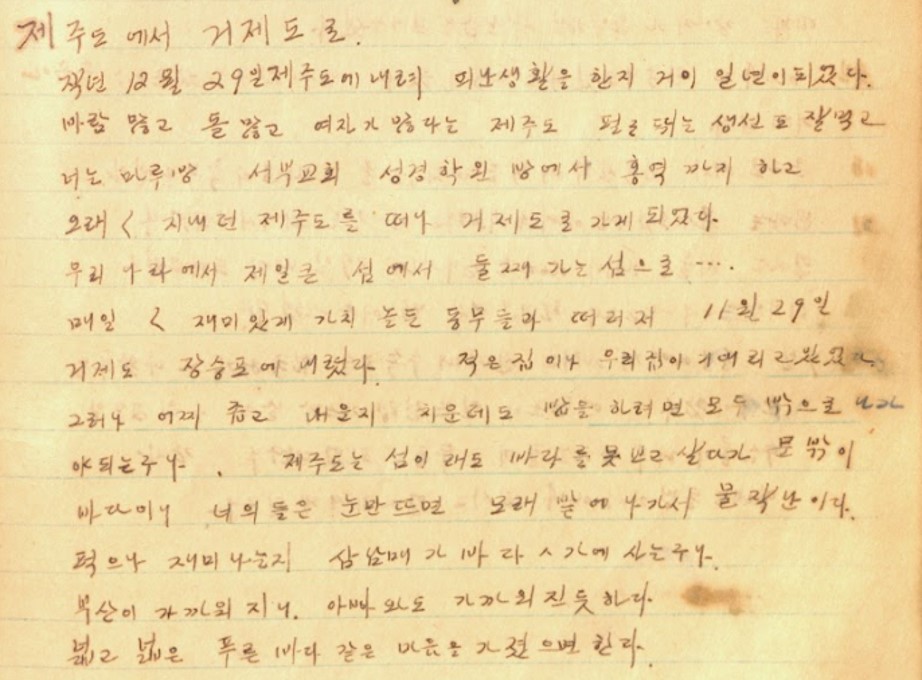 제주도에서 거제도로.
작년 12월 29일 제주도에 내려 피난생활을 한지 거이 일년이 되었다.
바람 많고 돌 많고 여자가 많다는 제주도 펄펄 뛰는 생선도 잘먹고
너는 마루방 서부교회 성경학원 방에서 홍역까지 하고
오래 < 지내던 제주도를 떠나 거제도로 가게 되었다.
우리나라에서 제일 큰 섬에서 둘째 가는 섬으로 ….
매일 < 재미있게 가치 놀든 동무들과 떠러저 11월 29일
거제도 장승포에 내렸다. 적은 집이나 우리집이 기대리고 있었다.
그러나 어찌 좁고 내운지 치운데도 밥을 하려면 모두 밖으로 나가
야 되는구나. 제주도는 섬이래도 바다를 못 보고 살다가 문 밖이
바다이니 너의들은 눈만 뜨면 모래 밭에 나가서 물작난이다.
퍽으나 재미나는지 삼남매가 바다 ㅅ가에 사는구나.
부산이 가까워 지니. 아빠와도 가까워진듯 하다.
넓고 넓은 푸른 바다 같은 마음을 가졌으면 한다.